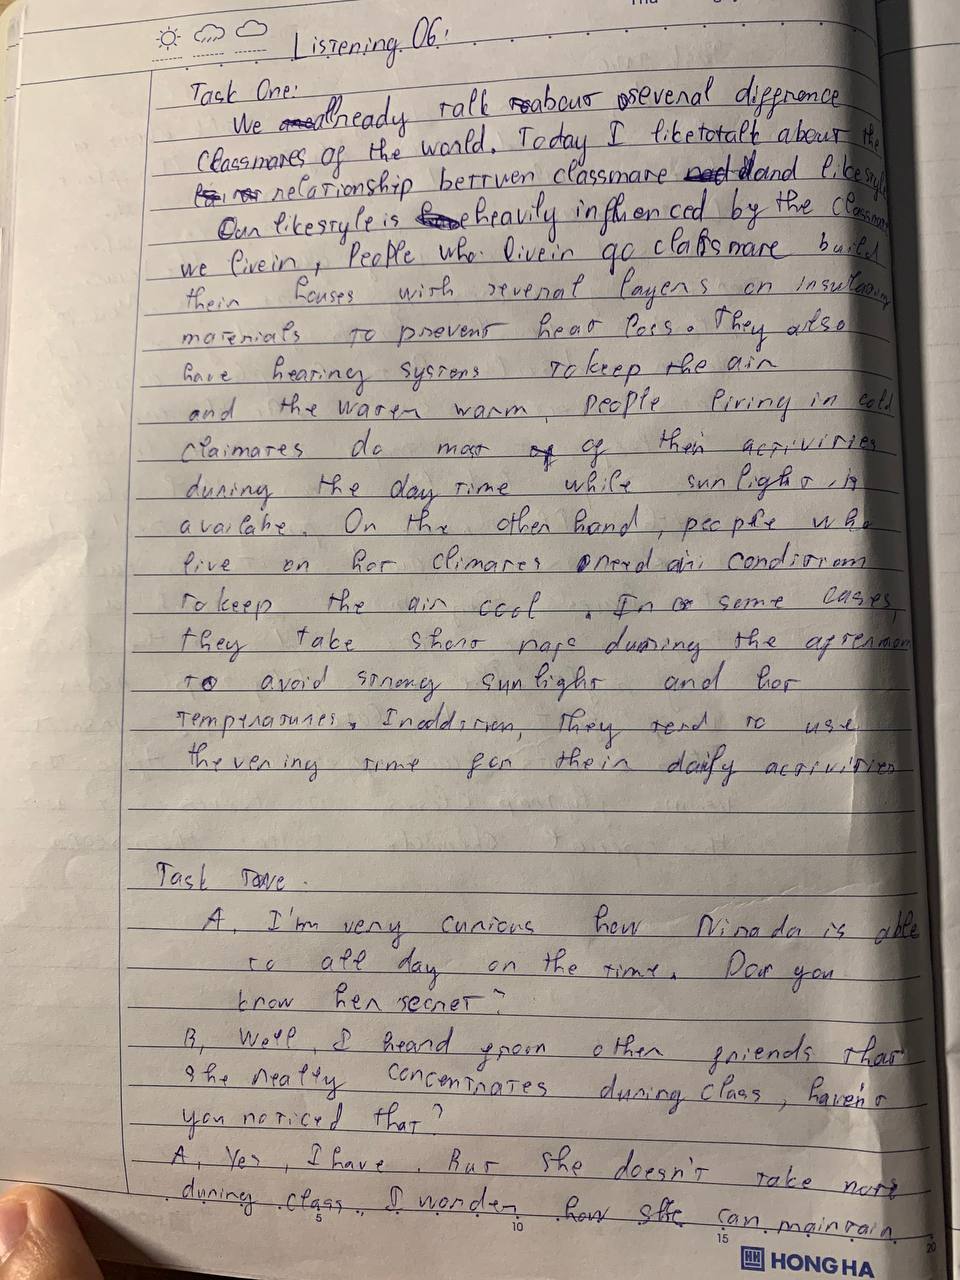 Thu
Listening 06:
Task One:
We allheady talk about several diffrence
Classmates of the world. Today I liketotalk about the
relationship betrven classmate and likestyle
Our likestyle is heavily influenced by the classmate
we livein, People who livein go classmate build
thein houses with several layers on insulating
materials to prevent heat loss. They also
have heating systems to keep the air
and the water warm, people living in cold
claimates do most of their activities
during the day time while sunlight is
availabe. On the other hand, people who
live on hot climates need air condition
to keep the air cool. In some cases,
they take short naps during the afternoon
to avoid strong sunlight and hot
temperatures. Inaddition, they tend to use
thevening time for thein daily activities
Task
A, I'm very curious how Ninada is able
to all day on the time. Dor you
know her secret?
B, Well, I heard from other friends that
she really concentrates during class, haven't
you noticed that?
A, Yes, I have. But she doesn't take note
during class. I wonder how she can maintain
5 10 15 20
HONG HA